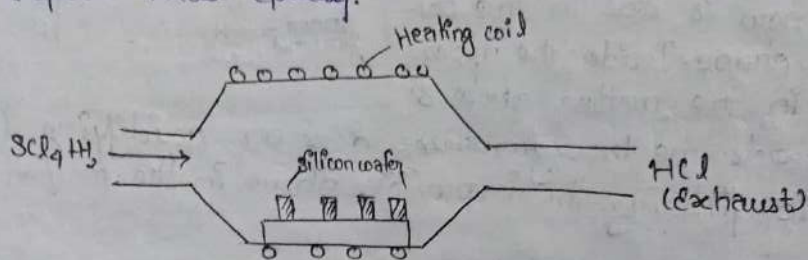 Heating coil
SCl4 + H2
Silicon wafer
HCl
(Exhaust)